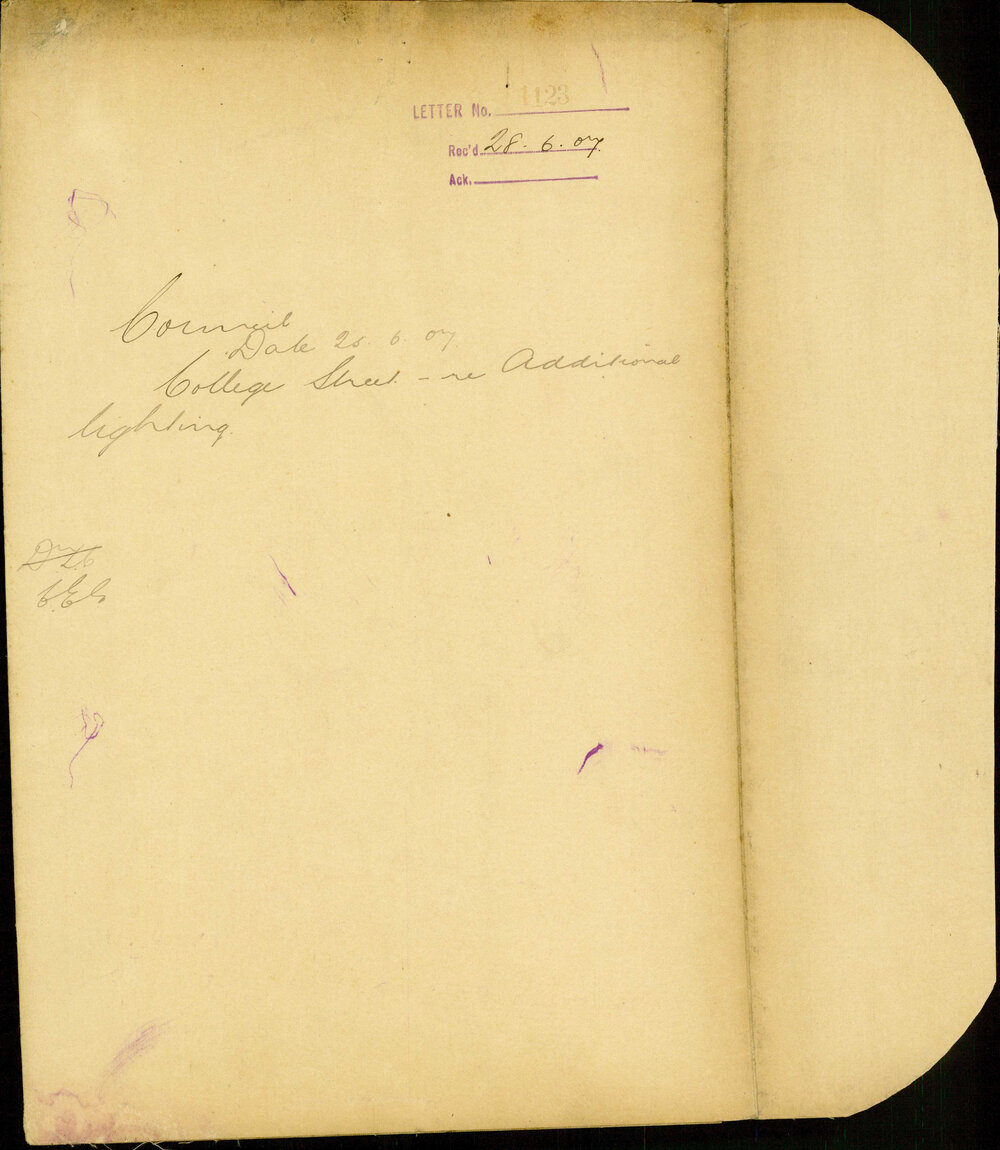 LETTER No. 1123
Rec'd 28. 6. 07
Ack.
Council
Date 25 6. 07.
College Street - re Additional
lighting.